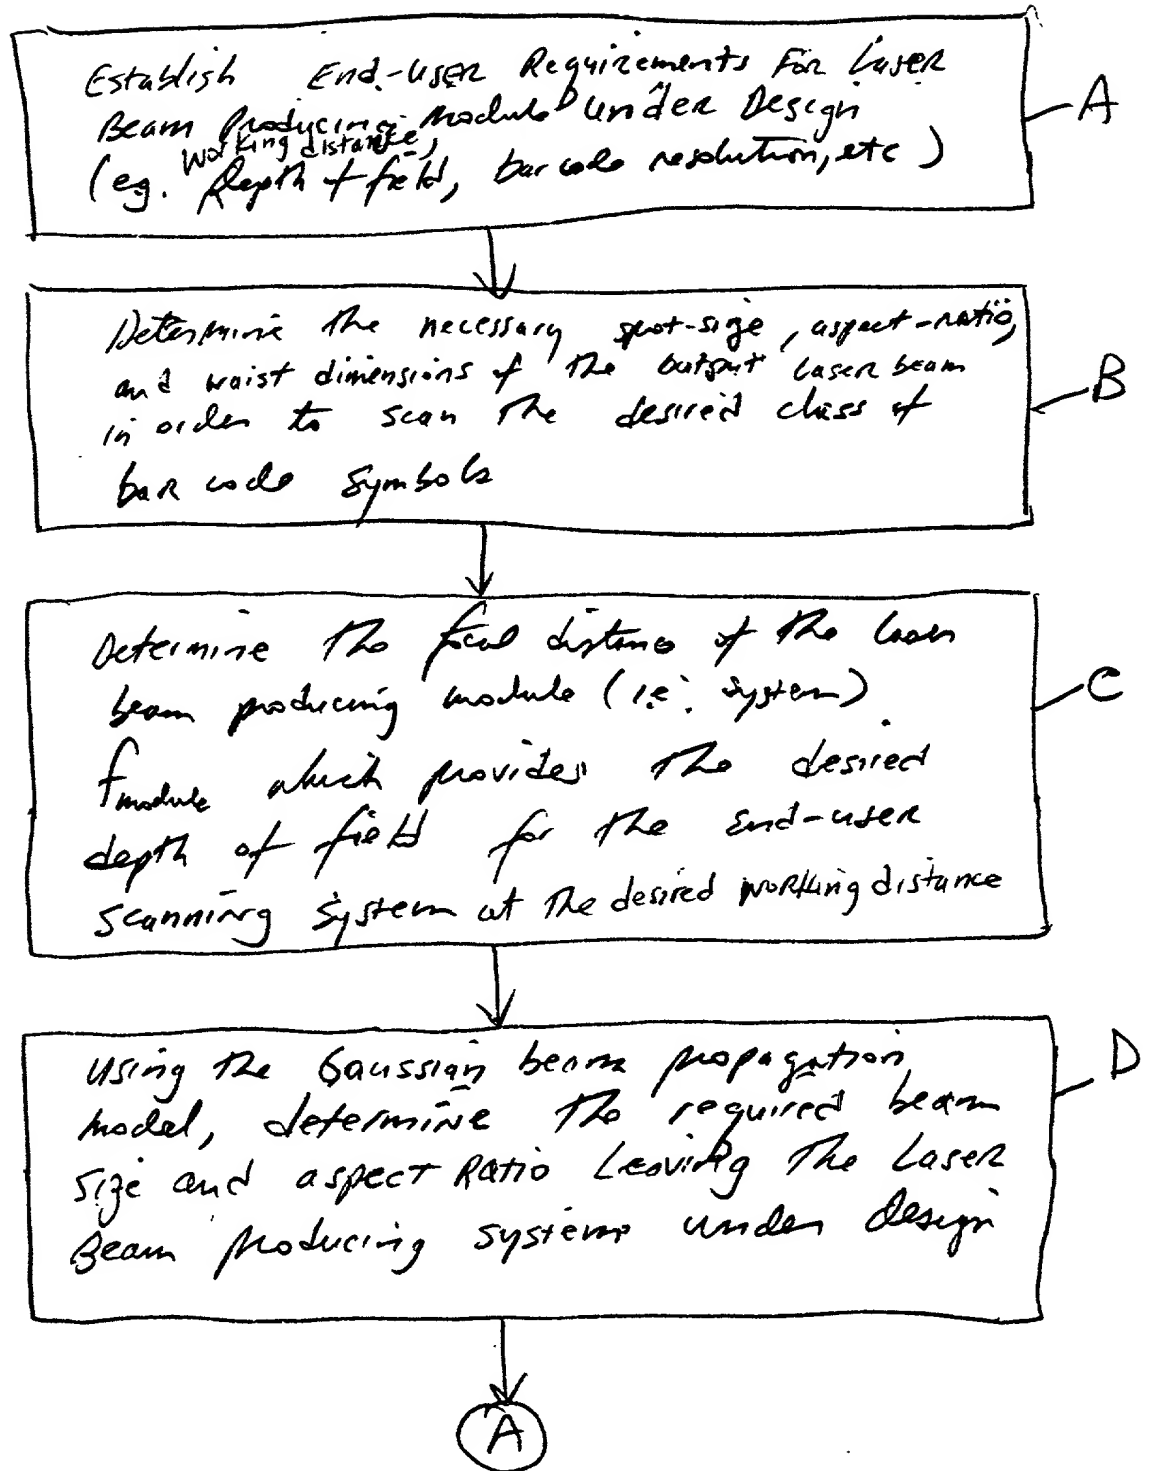 Establish End-user Requirements For Laser
Beam Producing Module Under Design
working distance,
(eg. Depth of field, bar code resolution, etc)
A
Determine the necessary spot-size, aspect-ratio,
and waist dimensions of the output laser beam
in order to scan the desired class of
bar code symbols
B
Determine the focal distance of the laser
beam producing module (i.e. system)
fmodule which provides the desired
depth of field for the end-user
scanning system at the desired working distance
C
Using the Gaussian beam propagation
model, determine the required beam
size and aspect Ratio Leaving The Laser
Beam producing system under design
D
A